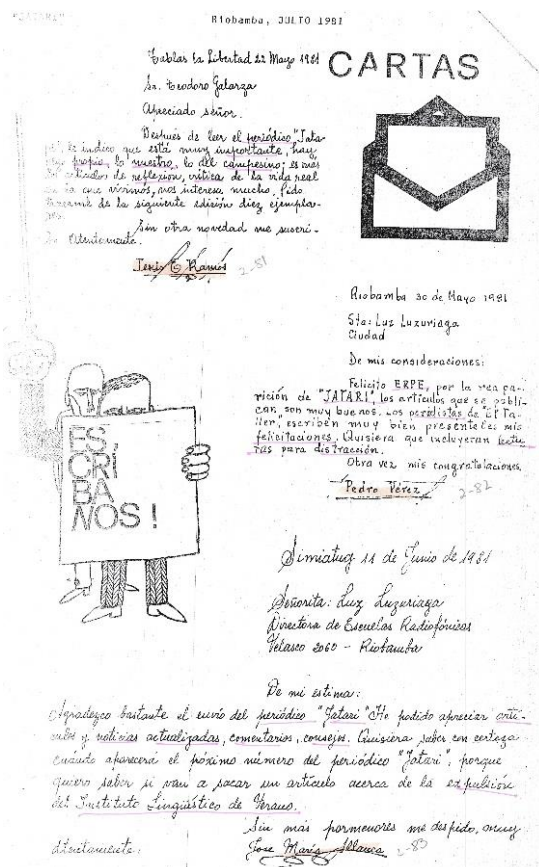 "JATARI"
Riobamba, JULIO 1981
CARTAS
Tablas la Libertad 22 Mayo 1981
Sr. Teodoro Galarza
Apreciado señor.
Después de leer el periódico "Jata-
le indico que está muy importante, hay
propio, lo nuestro, lo del campesino; es más
artículos de reflexión, crítica de la vida real
en la que vivimos, nos interesa mucho. Pido
de la siguiente edición diez ejempla-
Sin otra novedad me suscri-
Atentamente.
Jesús Ramos
2-81
Riobamba 30 de Mayo 1981
Sta: Luz Luzuriaga
Ciudad
De mis consideraciones:
Felicito ERPE, por la reapa-
rición de "JATARI", los artículos que se publi-
can son muy buenos. Los periodistas de "El Ta-
ller", escriben muy bien presenteles mis
felicitaciones. Quisiera que incluyeran lectu-
ras para distracción.
Otra vez mis congratulaciones,
Pedro Pérez
2-82
ES,
CRÍ
BA
NOS!
Simiatug 11 de Junio de 1981
Señorita: Luz Luzuriaga
Directora de Escuelas Radiofónicas
Velasco 2060 - Riobamba
De mi estima:
Agradezco bastante el envío del periódico "Jatari" He podido apreciar artí-
culos y noticias actualizadas, comentarios, consejos. Quisiera saber con certeza
cuándo aparecerá el próximo número del periódico "Jatari", porque
quiero saber si van a sacar un artículo acerca de la expulsión
del Instituto Lingüístico de Verano.
Sin más pormenores me despido, muy
atentamente:
Jose María
2-83